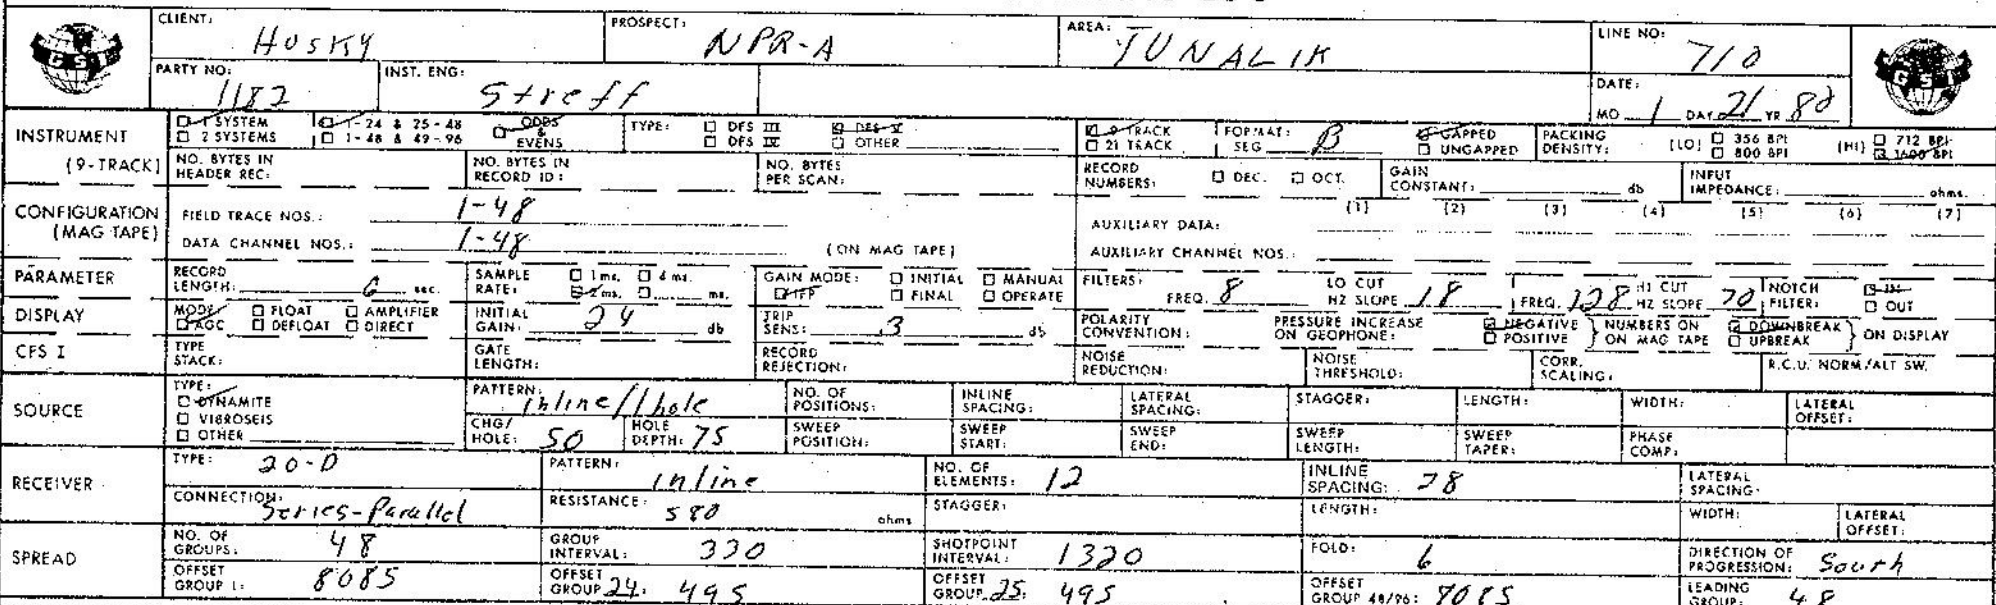 CLIENT: Husky PROSPECT: NPR-A AREA: TUNALIK LINE NO: 710
GSI GSI
PARTY NO: 1182 INST. ENG: Streff DATE: MO 1 DAY 21 YR 80
INSTRUMENT 1 SYSTEM 1-24 & 25-48 ODDS & EVENS TYPE: DFS III DFS V 9 TRACK FORMAT: SEG B GAPPED PACKING DENSITY: (LO) 356 BPI (HI) 712 BPI
2 SYSTEMS 1-48 & 49-96 DFS IV OTHER 21 TRACK UNGAPPED 800 BPI 1600 BPI
(9-TRACK) NO. BYTES IN HEADER REC: NO. BYTES IN RECORD ID: NO. BYTES PER SCAN: RECORD NUMBERS: DEC. OCT. GAIN CONSTANT: db INPUT IMPEDANCE: ohms.
CONFIGURATION (MAG TAPE) FIELD TRACE NOS.: 1-48 AUXILIARY DATA: (1) (2) (3) (4) (5) (6) (7)
DATA CHANNEL NOS.: 1-48 (ON MAG TAPE) AUXILIARY CHANNEL NOS.:
PARAMETER RECORD LENGTH: 6 sec. SAMPLE RATE: 1 ms. 4 ms. 2 ms. ms. GAIN MODE: INITIAL MANUAL IFP FINAL OPERATE FILTERS: FREQ. 8 LO CUT HZ SLOPE 18 FREQ. 128 HI CUT HZ SLOPE 70 NOTCH FILTER: IN OUT
DISPLAY MODE FLOAT AMPLIFIER AGC DEFLOAT DIRECT INITIAL GAIN: 24 db TRIP SENS: .3 db POLARITY CONVENTION: PRESSURE INCREASE ON GEOPHONE: NEGATIVE POSITIVE NUMBERS ON ON MAG TAPE DOWNBREAK UPBREAK ON DISPLAY
CFS I TYPE STACK: GATE LENGTH: RECORD REJECTION: NOISE REDUCTION: NOISE THRESHOLD: CORR. SCALING: R.C.U. NORM/ALT SW.
SOURCE TYPE: DYNAMITE VIBROSEIS OTHER PATTERN: inline/1 hole NO. OF POSITIONS: INLINE SPACING: LATERAL SPACING: STAGGER: LENGTH: WIDTH: LATERAL OFFSET:
CHG/HOLE: 50 HOLE DEPTH: 75 SWEEP POSITION: SWEEP START: SWEEP END: SWEEP LENGTH: SWEEP TAPER: PHASE COMP:
RECEIVER TYPE: 20-D PATTERN: inline NO. OF ELEMENTS: 12 INLINE SPACING: 28 LATERAL SPACING:
CONNECTION: Series-Parallel RESISTANCE: 580 ohms STAGGER: LENGTH: WIDTH: LATERAL OFFSET:
SPREAD NO. OF GROUPS: 48 GROUP INTERVAL: 330 SHOTPOINT INTERVAL: 1320 FOLD: 6 DIRECTION OF PROGRESSION: South
OFFSET GROUP 1: 8085 OFFSET GROUP 24: 495 OFFSET GROUP 25: 495 OFFSET GROUP 48/96: 8085 LEADING GROUP: 48